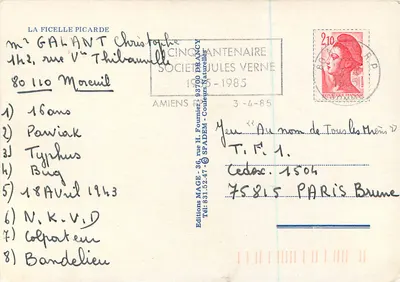 LA FICELLE PICARDE
mr GALANT Christophe
142, rue Vor Thibauville
80 110 Moreuil
1) 16 ans
2) Pawiak
3) Typhus
4) Bug
5) 18 Avril 1943
6) N.K.V.D
7) Colporteur
8) Bandelieu
Editions MAGE - 36, rue H. Fournier - 93700 DRANCY
Tél: 831.52.47 © SPADEM - Couleurs Naturelles
CINQUANTENAIRE
SOCIETE JULES VERNE
1935-1985
AMIENS R.P. 3-4-85
2,10
Jeu "Au nom de Tous les miens"
T.F.1.
Cedex. 1504
75815 PARIS Brune